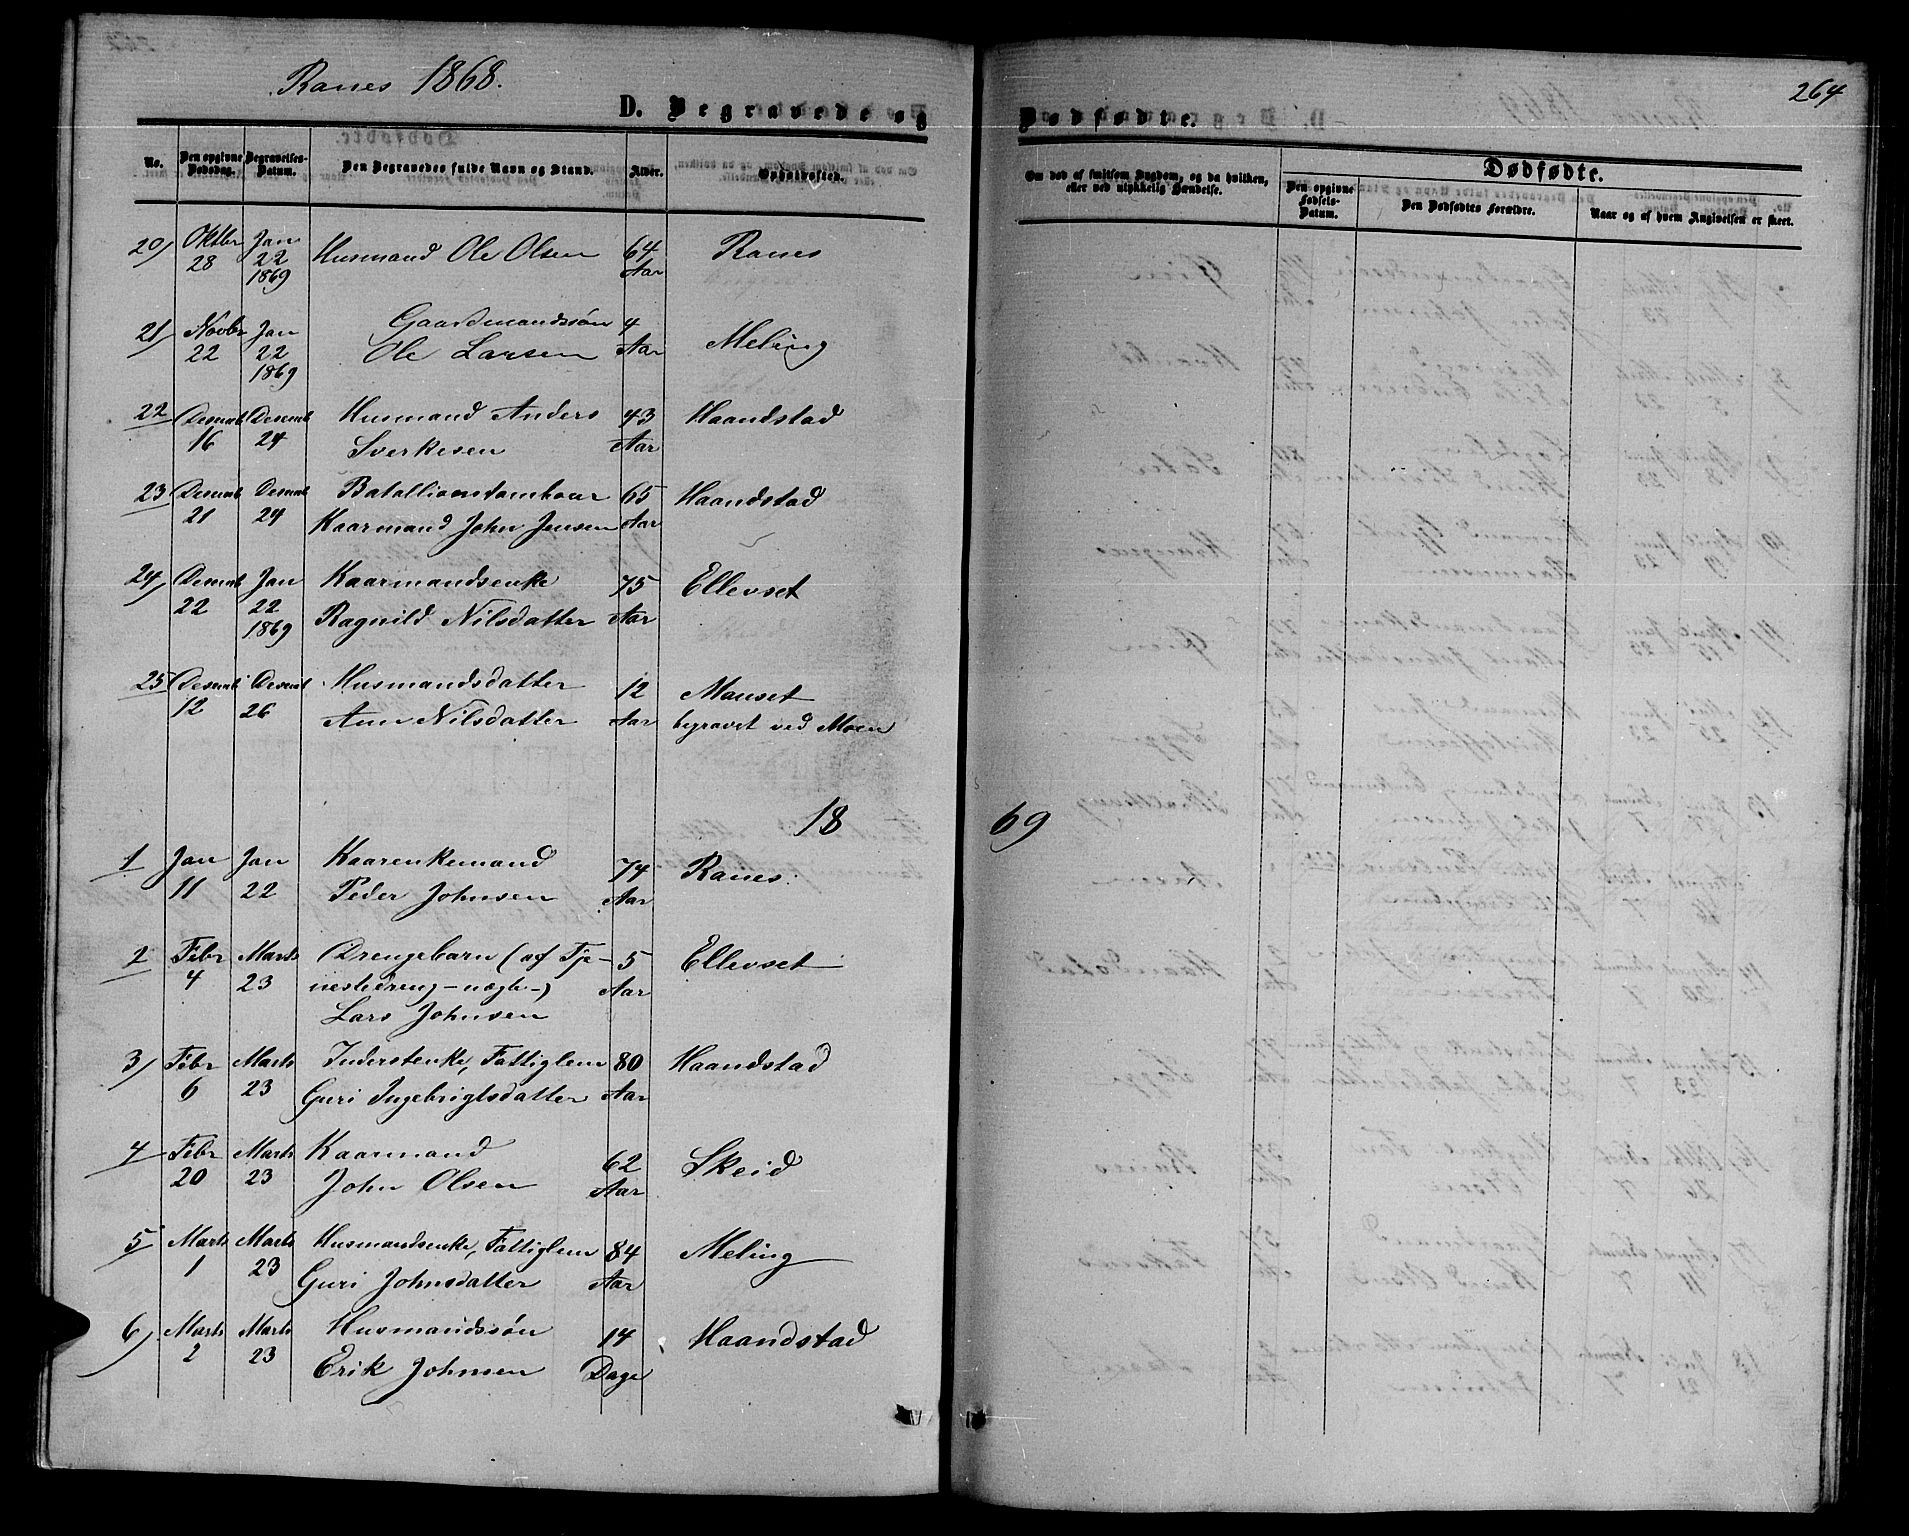 Ranes 1868.
264
D. Begravede og Dødfødte.
No.
Den opgivne Dødsdag.
Begravelses-Datum.
Den Begravedes fulde Navn og Stand.
Alder.
Opholdssted.
Om død af smitsom Sygdom, og da hvilken, eller ved ulykkelig Hændelse.
Dødfødte.
Den opgivne Fødsels-Datum.
Den Dødfødtes Forældre.
Naar og af hvem Angivelsen er skeet.
20) Oktbr 28 Jan 22 1869 Husmand Ole Olsen 64 Aar Ranes
21) Novbr 22 Jan 22 1869 Gaardmandssøn 4 Aar Meling
Ole Larsen
22 Desemb 16 Desemb 24 Husmand Anders 43 Aar Haandstad
Sverkesen
23 Desemb 21 Desemb 24 Batallionstambour 65 Aar Haandstad
Kaarmand John Jensen
24) Desemb 22 Jan 22 1869 Kaarmandsenke 75 Aar Ellevset
Ragnild Nilsdatter
25 Desemb 12 Desemb 26 Husmandsdatter 12 Aar Mauset
Ann Nilsdatter begravet ved Moen
1869
1 Jan 11 Jan 22 Kaarenkemand 74 Aar Ranes.
Peder Johnsen
2 Febr 4 Marts 23 Drengebarn (af Tje- 5 Aar Ellevset
nestedreng - uægte -)
Lars Johnsen
3) Febr 6 Marts 23 Inderstenke, Fattiglem 80 Aar Haandstad
Guri Ingebrigtsdatter
4 Febr 20 Marts 23 Kaarmand 62 Aar Skeid
John Olsen
5 Marts 1 Marts 23 Husmandsenke, Fattiglem 84 Aar Meling
Guri Johnsdatter
6) Marts 2 Marts 23 Husmandssøn 14 Dage Haandstad
Erik Johnsen